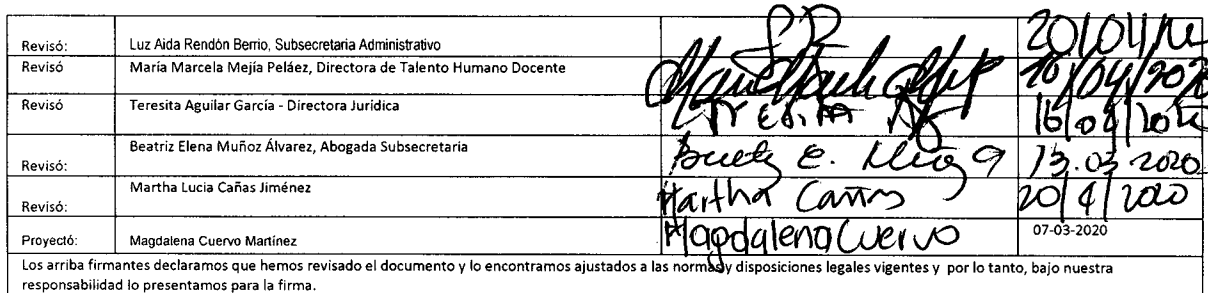 Revisó: Luz Aida Rendón Berrio, Subsecretaria Administrativo
Revisó María Marcela Mejía Peláez, Directora de Talento Humano Docente
Revisó Teresita Aguilar García - Directora Jurídica
Revisó: Beatriz Elena Muñoz Álvarez, Abogada Subsecretaria 13.03 2020
Revisó: Martha Lucia Cañas Jiménez Martha Cañas 20/4/2020
Proyectó: Magdalena Cuervo Martínez Magdalena Cuervo 07-03-2020
Los arriba firmantes declaramos que hemos revisado el documento y lo encontramos ajustados a las normas y disposiciones legales vigentes y por lo tanto, bajo nuestra
responsabilidad lo presentamos para la firma.